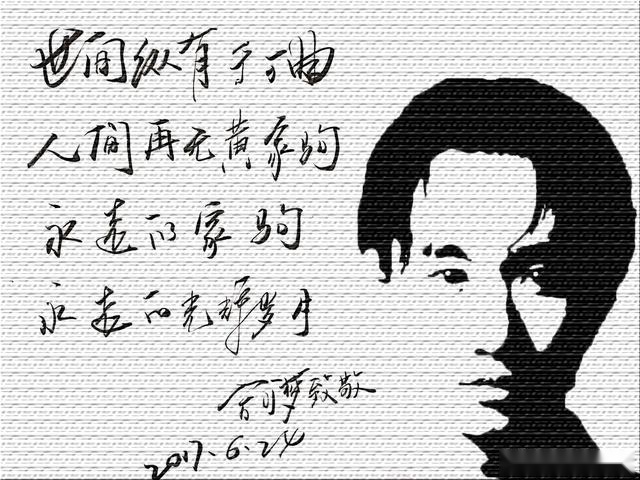 世间纵有千万曲
人间再无黄家驹
永远的家驹
永远的光辉岁月
梦致敬
2017.6.24